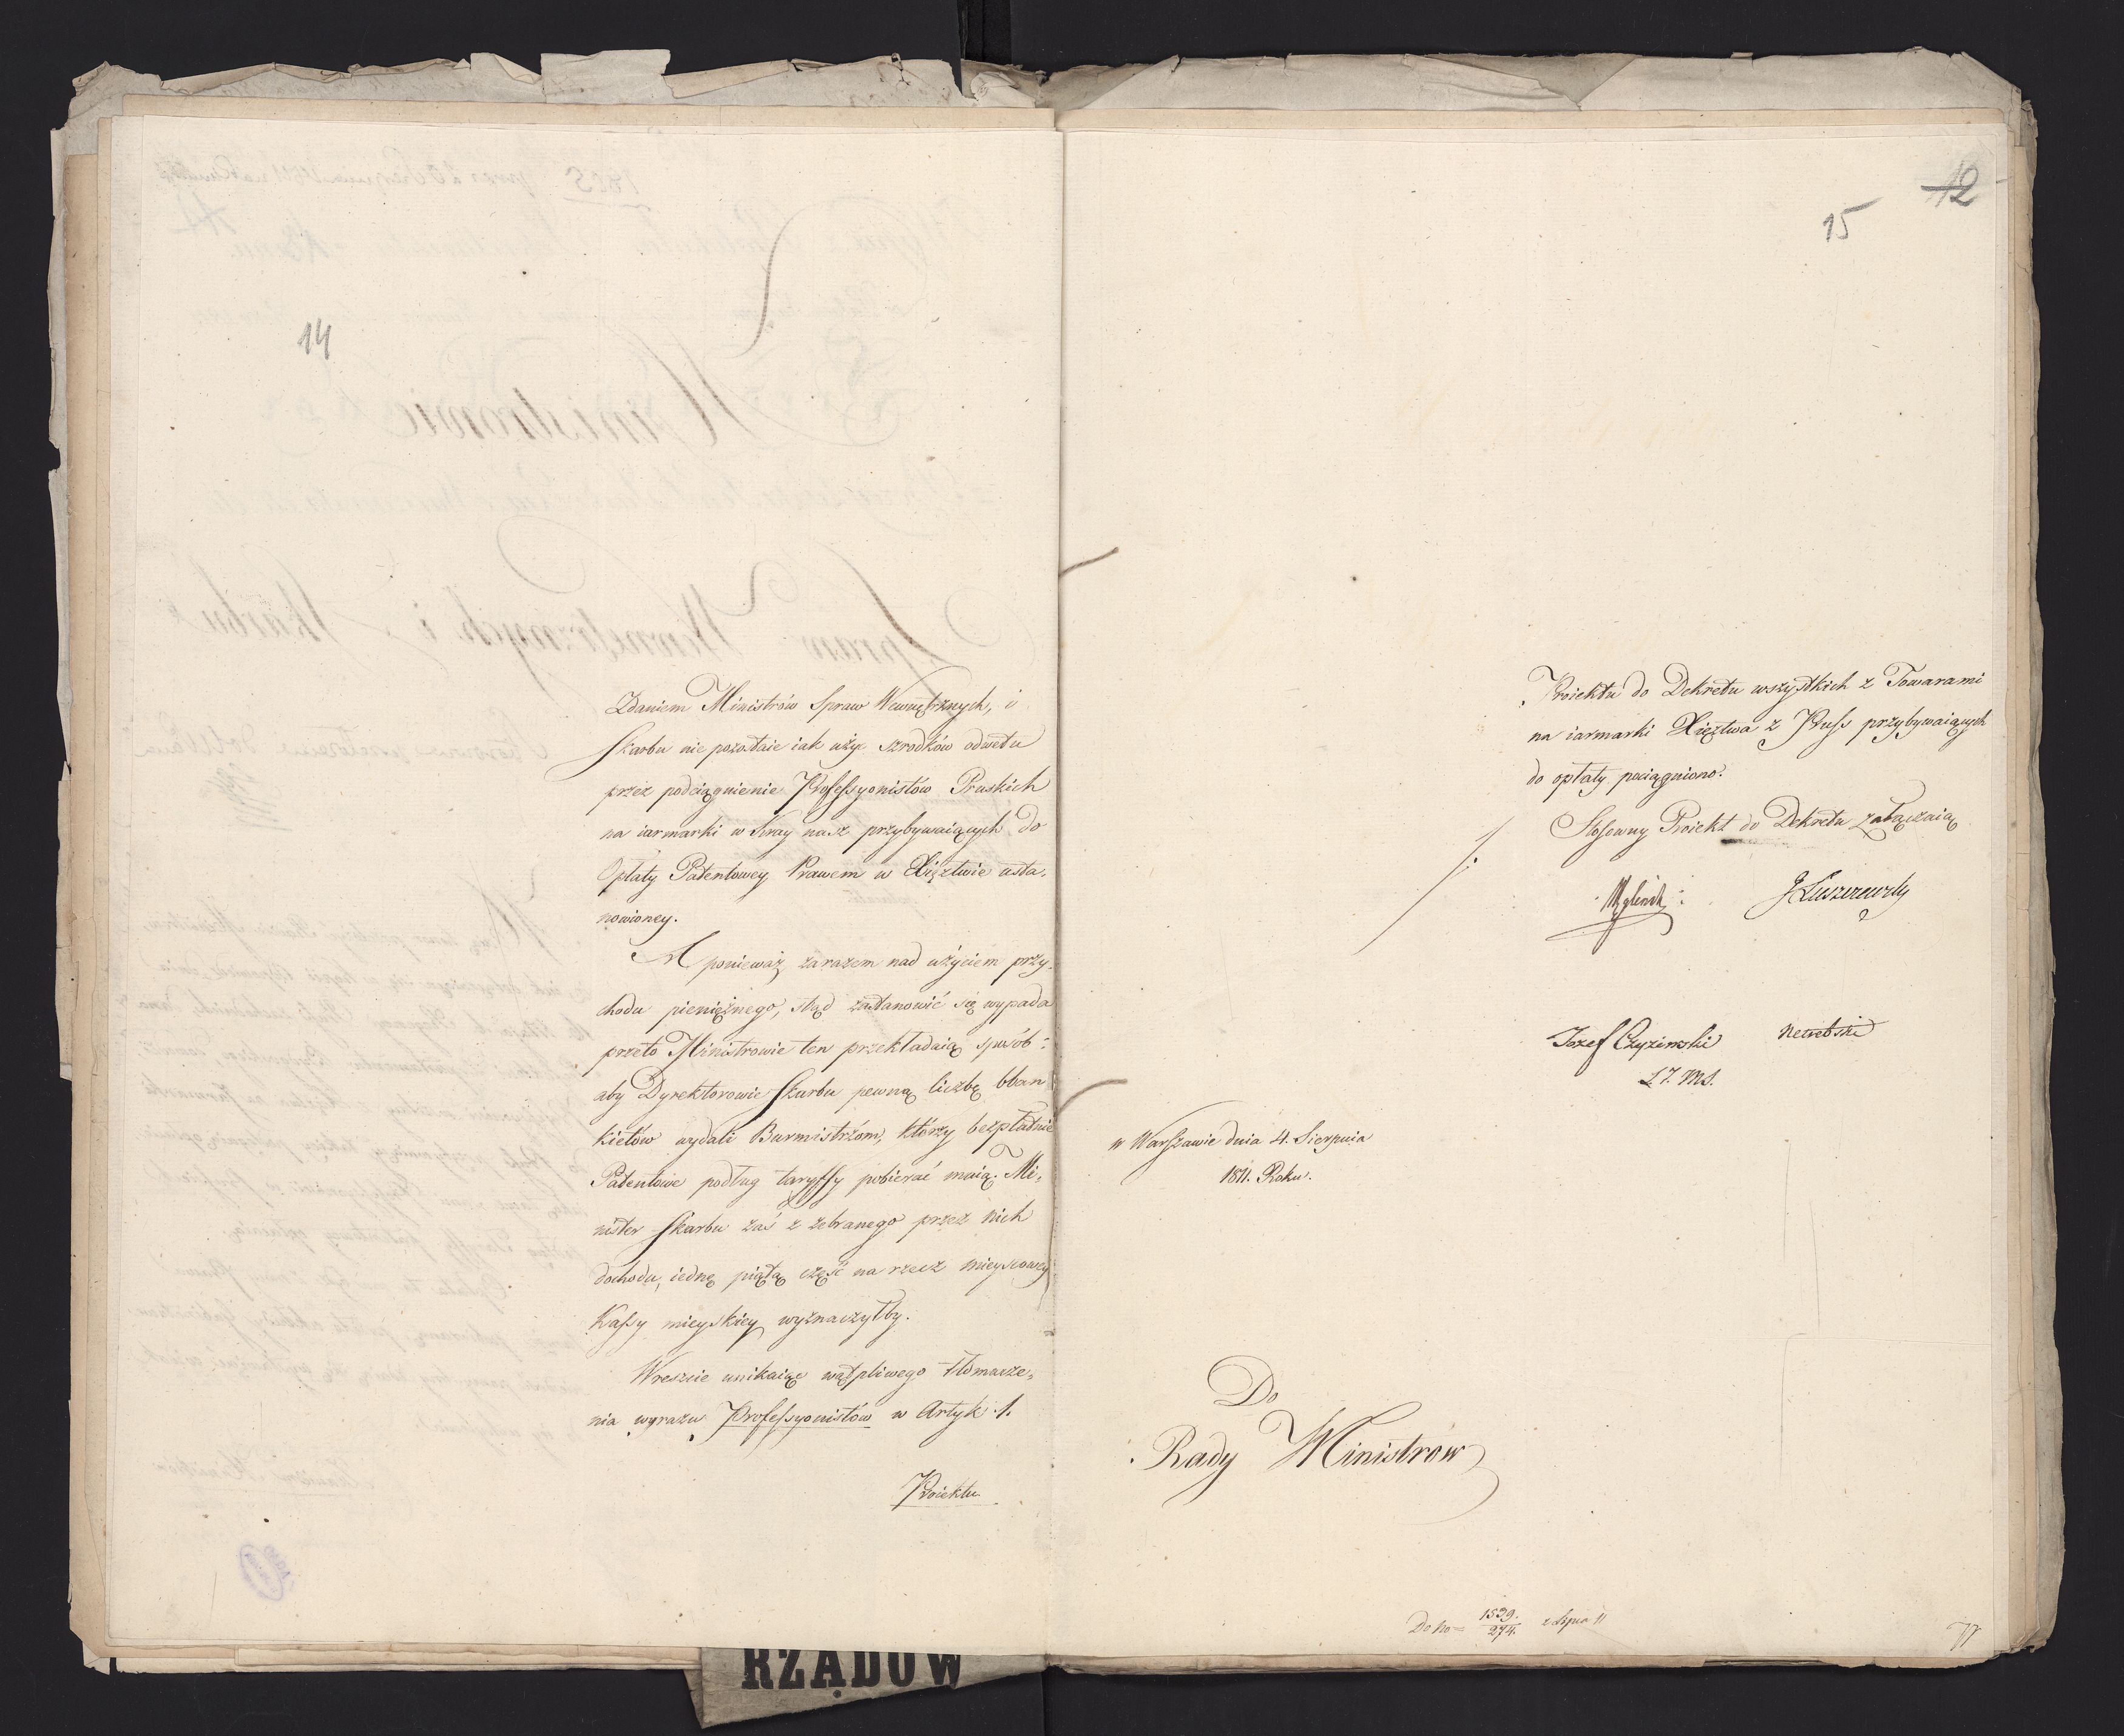 14
Zdaniem Ministrów Spraw Wewnętrznych, i
Skarbu nie pozostaie iak użyć szrodków odwetu
przez podciągnienie Professyonistów Pruskich
na iarmarki w Kray nasz przybywaiących do
Opłaty Patentowey Prawem w Xięztwie usta-
nowioney.
A ponieważ zarazem nad użyciem przy-
chodu pieniężnego, stąd zastanowić się wypada
przeto Ministrowie ten przekładaią sposób:
aby Dyrektorowie Skarbu pewną liczbę blan
kietów wydali Burmistrzom, którzy bezpłatnie
Patentowe podług taryffy pobierać maią. Mi-
nister Skarbu zaś z zebranego przez nich
dochodu, iednę piątą część na rzecz mieyscowey
Kassy mieyskiey wyznaczyłby.
Wreszcie unikaiąc wątpliwego tłómacze-
nia wyrazu Professyonistów w Artyk: 1.
Proiektu
12
15
Proiektu do Dekretu wszystkich z Towarami
na iarmarki Xięztwa z Pruss przybywaiących
do opłaty pociągniono.
Stosowny Proiekt do Dekretu załączaią
J Łuszczewski
Jozef Czyzinski
w Warszawie dnia 4. Sierpnia
1811. Roku.
Do
Rady Ministrow
Do No 1539.
274. z Lipca 11
RZĄDOW